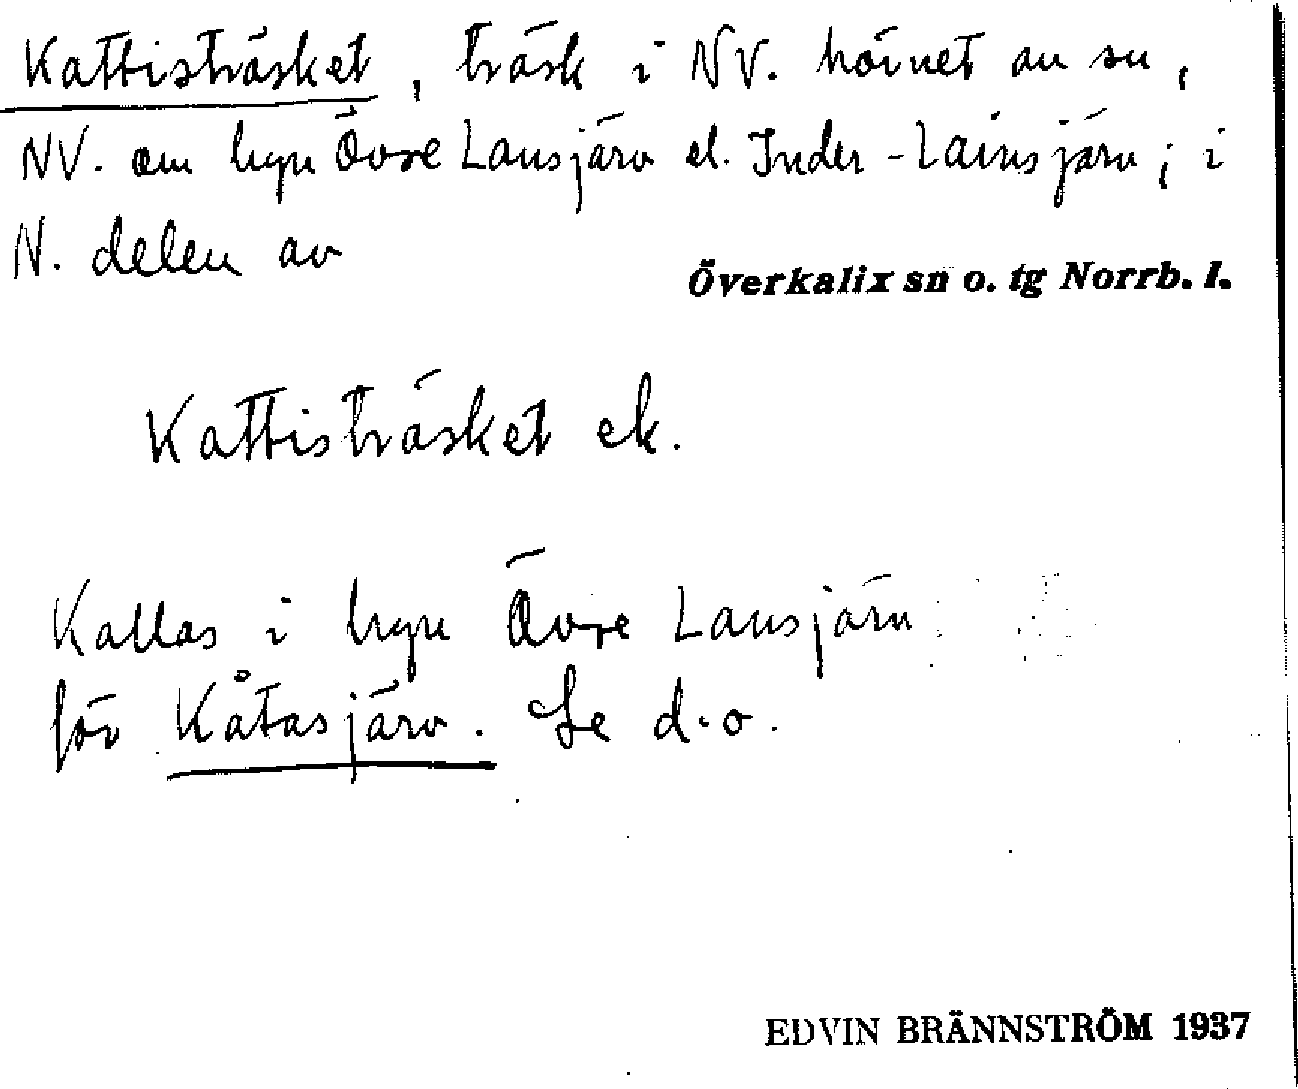 Kattisträsket, träsk i NV. hörnet av sn,
NV. om byn Övre Lansjärv el. Inder-Lainsjärv; i
N. delen av
Överkalix sn o. tg Norrb. l.
Kattisträsket ek.
Kallas i byn Övre Lansjärv
för Kåtasjärv. Se d.o.
EDVIN BRÄNNSTRÖM 1937